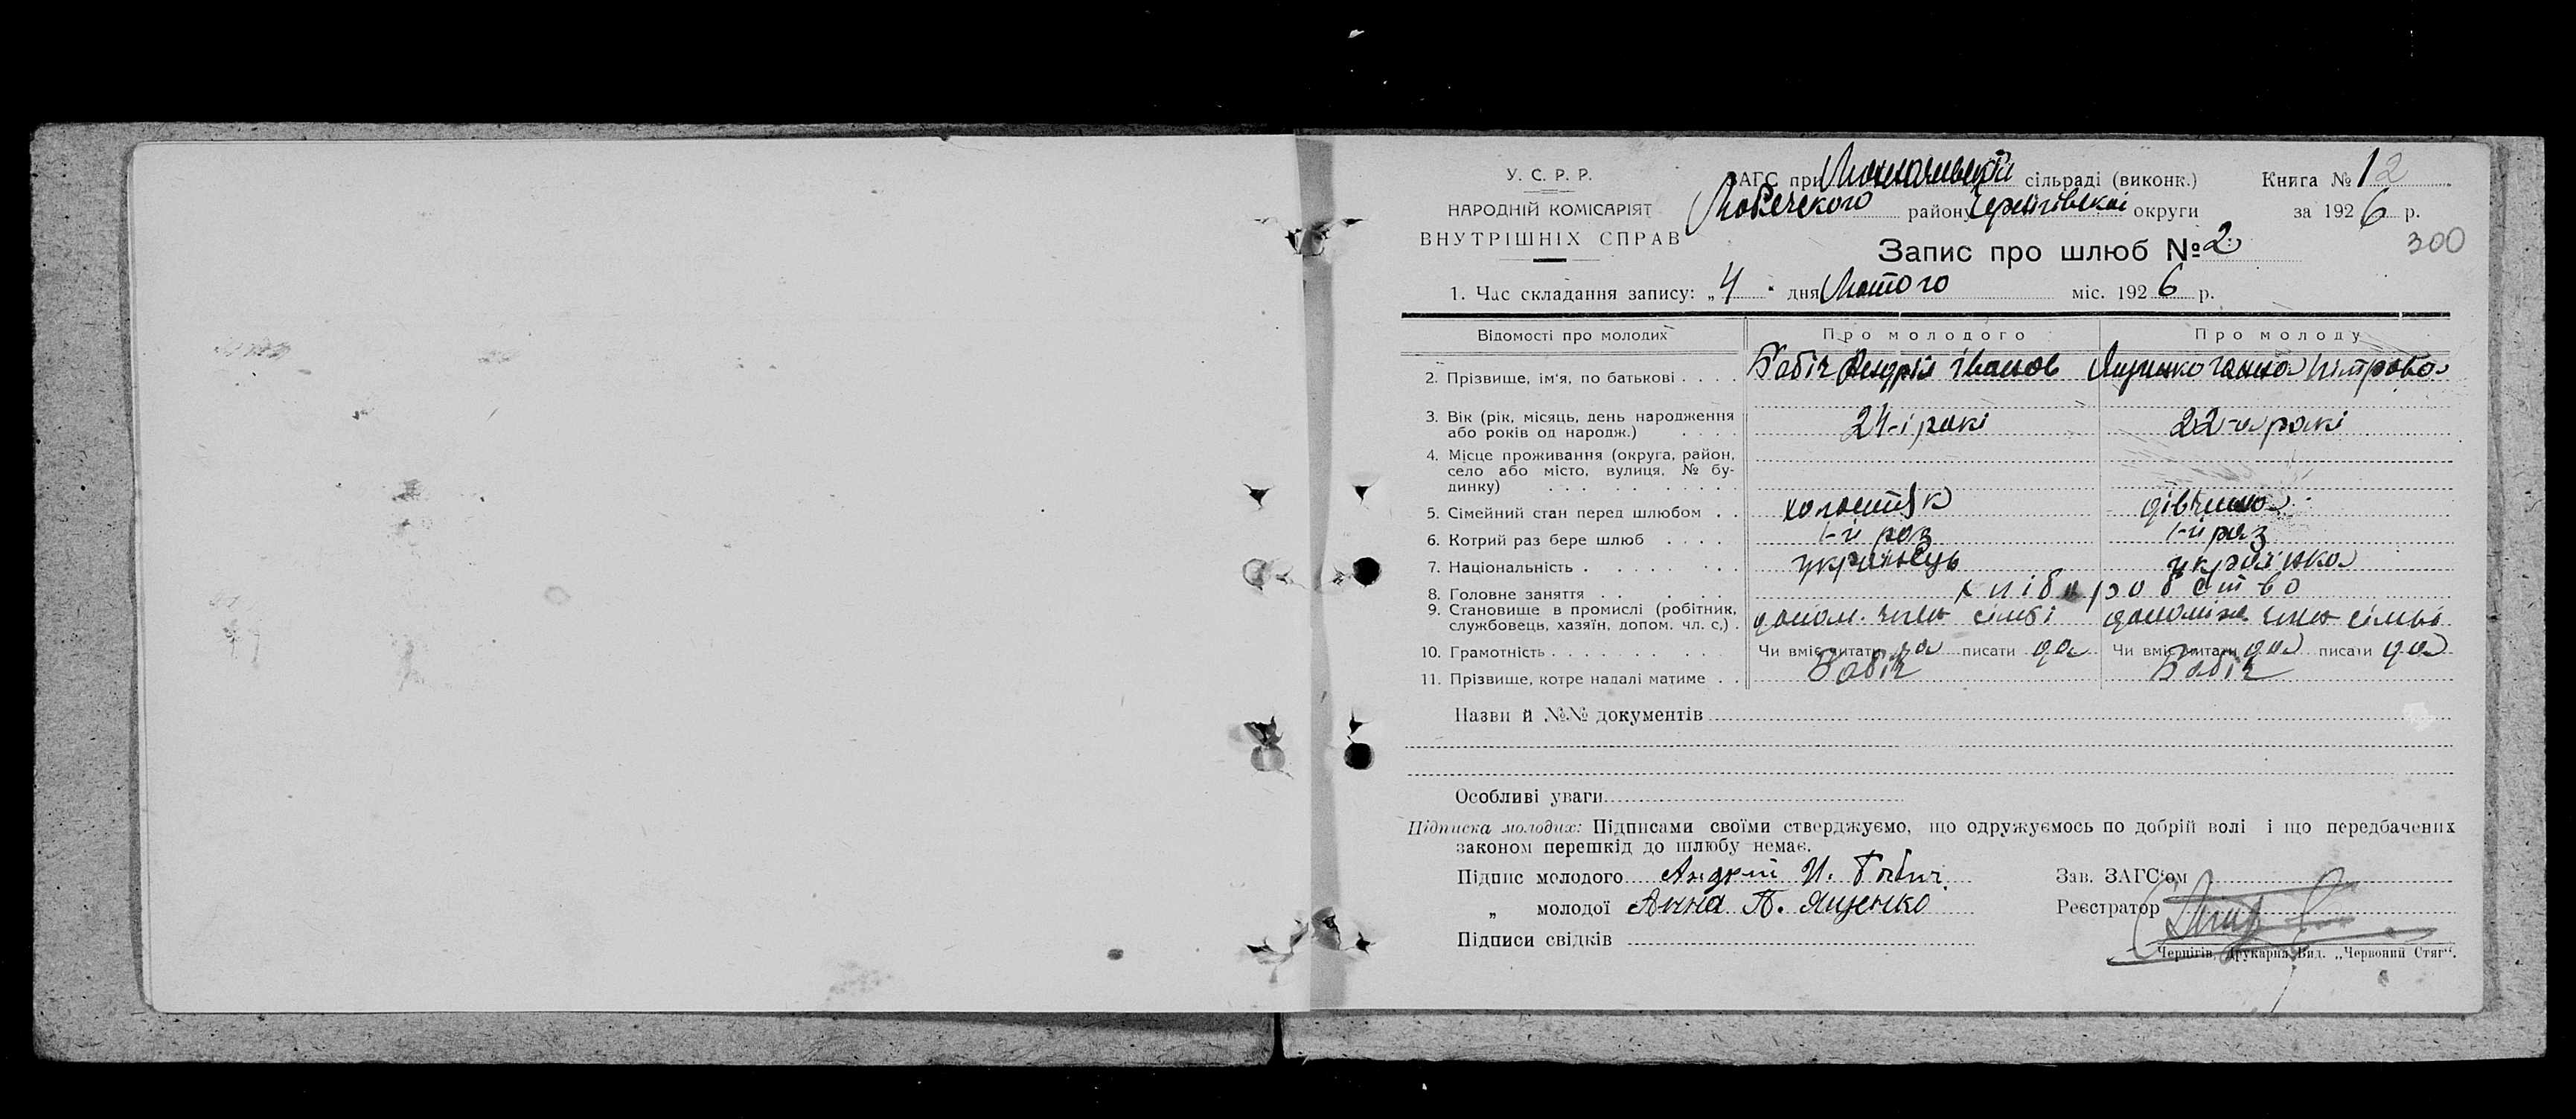 У. С. Р. Р.
НАРОДНІЙ КОМІСАРІЯТ
ВНУТРІШНІХ СПРАВ
ЗАГС при сільраді (виконк.) Книга № 12
Любечского району Чернігівскої округи за 1926 р.
Запис про шлюб № 2
300
1. Час складання запису: „4" дня Лютого міс. 1926 р.
Відомості про молодих Про молодого Про молоду
2. Прізвище, ім'я, по батькові . . . . Бабіч Андрій Іванов Ященко Ганна Петрова
3. Вік (рік, місяць, день народження
або років од народж.) . . . . 24-і рокі 22-а рокі
4. Місце проживання (округа, район,
село або місто, вулиця, № бу-
динку) . . . . . . . . .
5. Сімейний стан перед шлюбом . . холостяк дівчина
6. Котрий раз бере шлюб . . . . 1-й раз 1-й раз
7. Національність . . . . . . . українець українка
8. Головне заняття . . . . . . хлібаробство
9. Становище в промислі (робітник,
службовець, хазяїн, допом. чл. с,) . допом. член сімьі допоміж. член сімьі
10. Грамотність . . . . . . . . Чи вміє читати да писати да Чи вміє читати да писати да
11. Прізвище, котре надалі матиме . . Бабіч Бабіч
Назви й №№ документів
Особливі уваги
Підписка молодих: Підписами своїми стверджуємо, що одружуємось по добрій волі і що передбачених
законом перешкід до шлюбу немає.
Підпис молодого Андрій И. Бабич Зав. ЗАГС'ом
„ молодої Анна П. Ященко Реєстратор
Підписи свідків
Чернігів, Друкарня Вид. „Червоний Стяг".